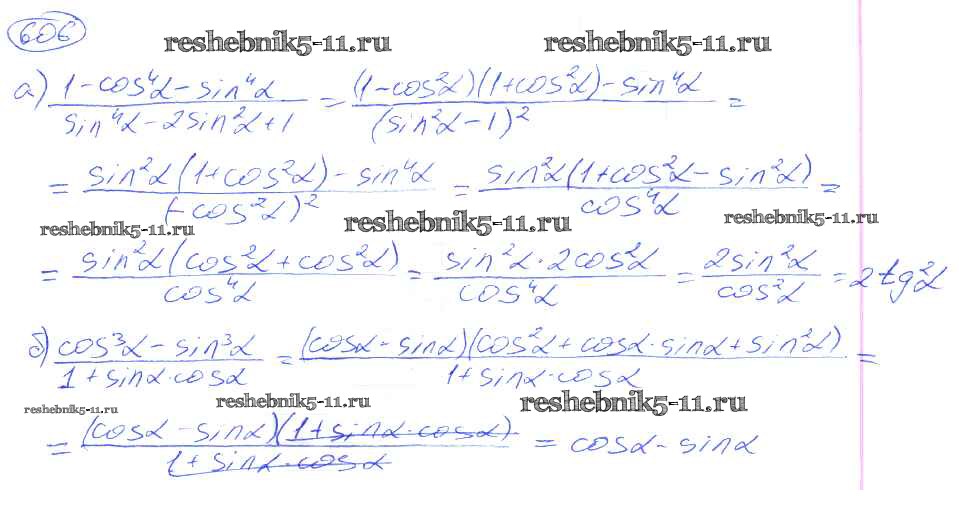 606
reshebnik5-11.ru reshebnik5-11.ru
а) (1-cos⁴α-sin⁴α)/(sin⁴α-2sin²α+1) = ((1-cos²α)(1+cos²α)-sin⁴α)/(sin²α-1)² =
= (sin²α(1+cos²α)-sin⁴α)/(-cos²α)² = (sin²α(1+cos²α-sin²α))/cos⁴α =
reshebnik5-11.ru reshebnik5-11.ru reshebnik5-11.ru
= (sin²α(cos²α+cos²α))/cos⁴α = (sin²α·2cos²α)/cos⁴α = 2sin²α/cos²α = 2tg²α
б) (cos³α-sin³α)/(1+sinα·cosα) = ((cosα-sinα)(cos²α+cosα·sinα+sin²α))/(1+sinα·cosα) =
reshebnik5-11.ru reshebnik5-11.ru reshebnik5-11.ru
= ((cosα-sinα)(1+sinα·cosα))/(1+sinα·cosα) = cosα-sinα